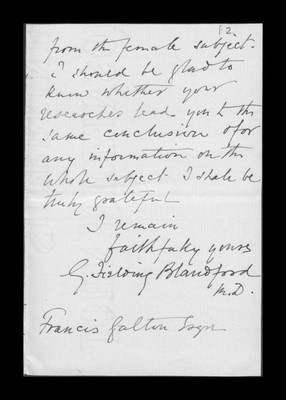 52
from the female subject.
I should be glad to
know whether your
researches lead you to the
same conclusion & for
any information on the
whole subject I shall be
truly grateful
I remain
faithfully yours
G. Fielding Blandford
M.D.
Francis Galton Esqre